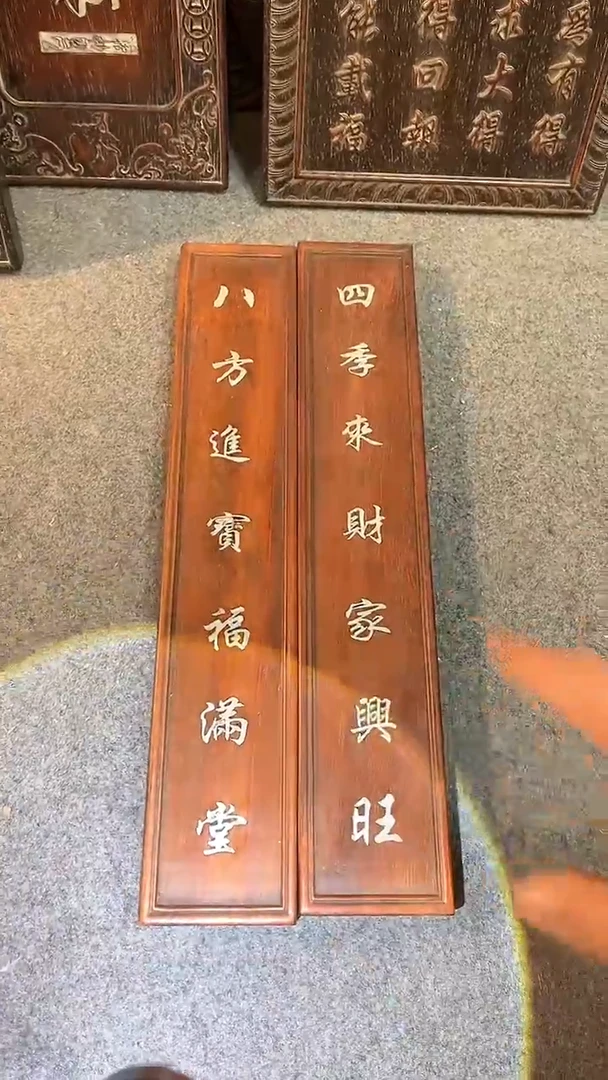 四季來財家興旺
八方進寶福滿堂
為有得
求大得
得回報
能載福